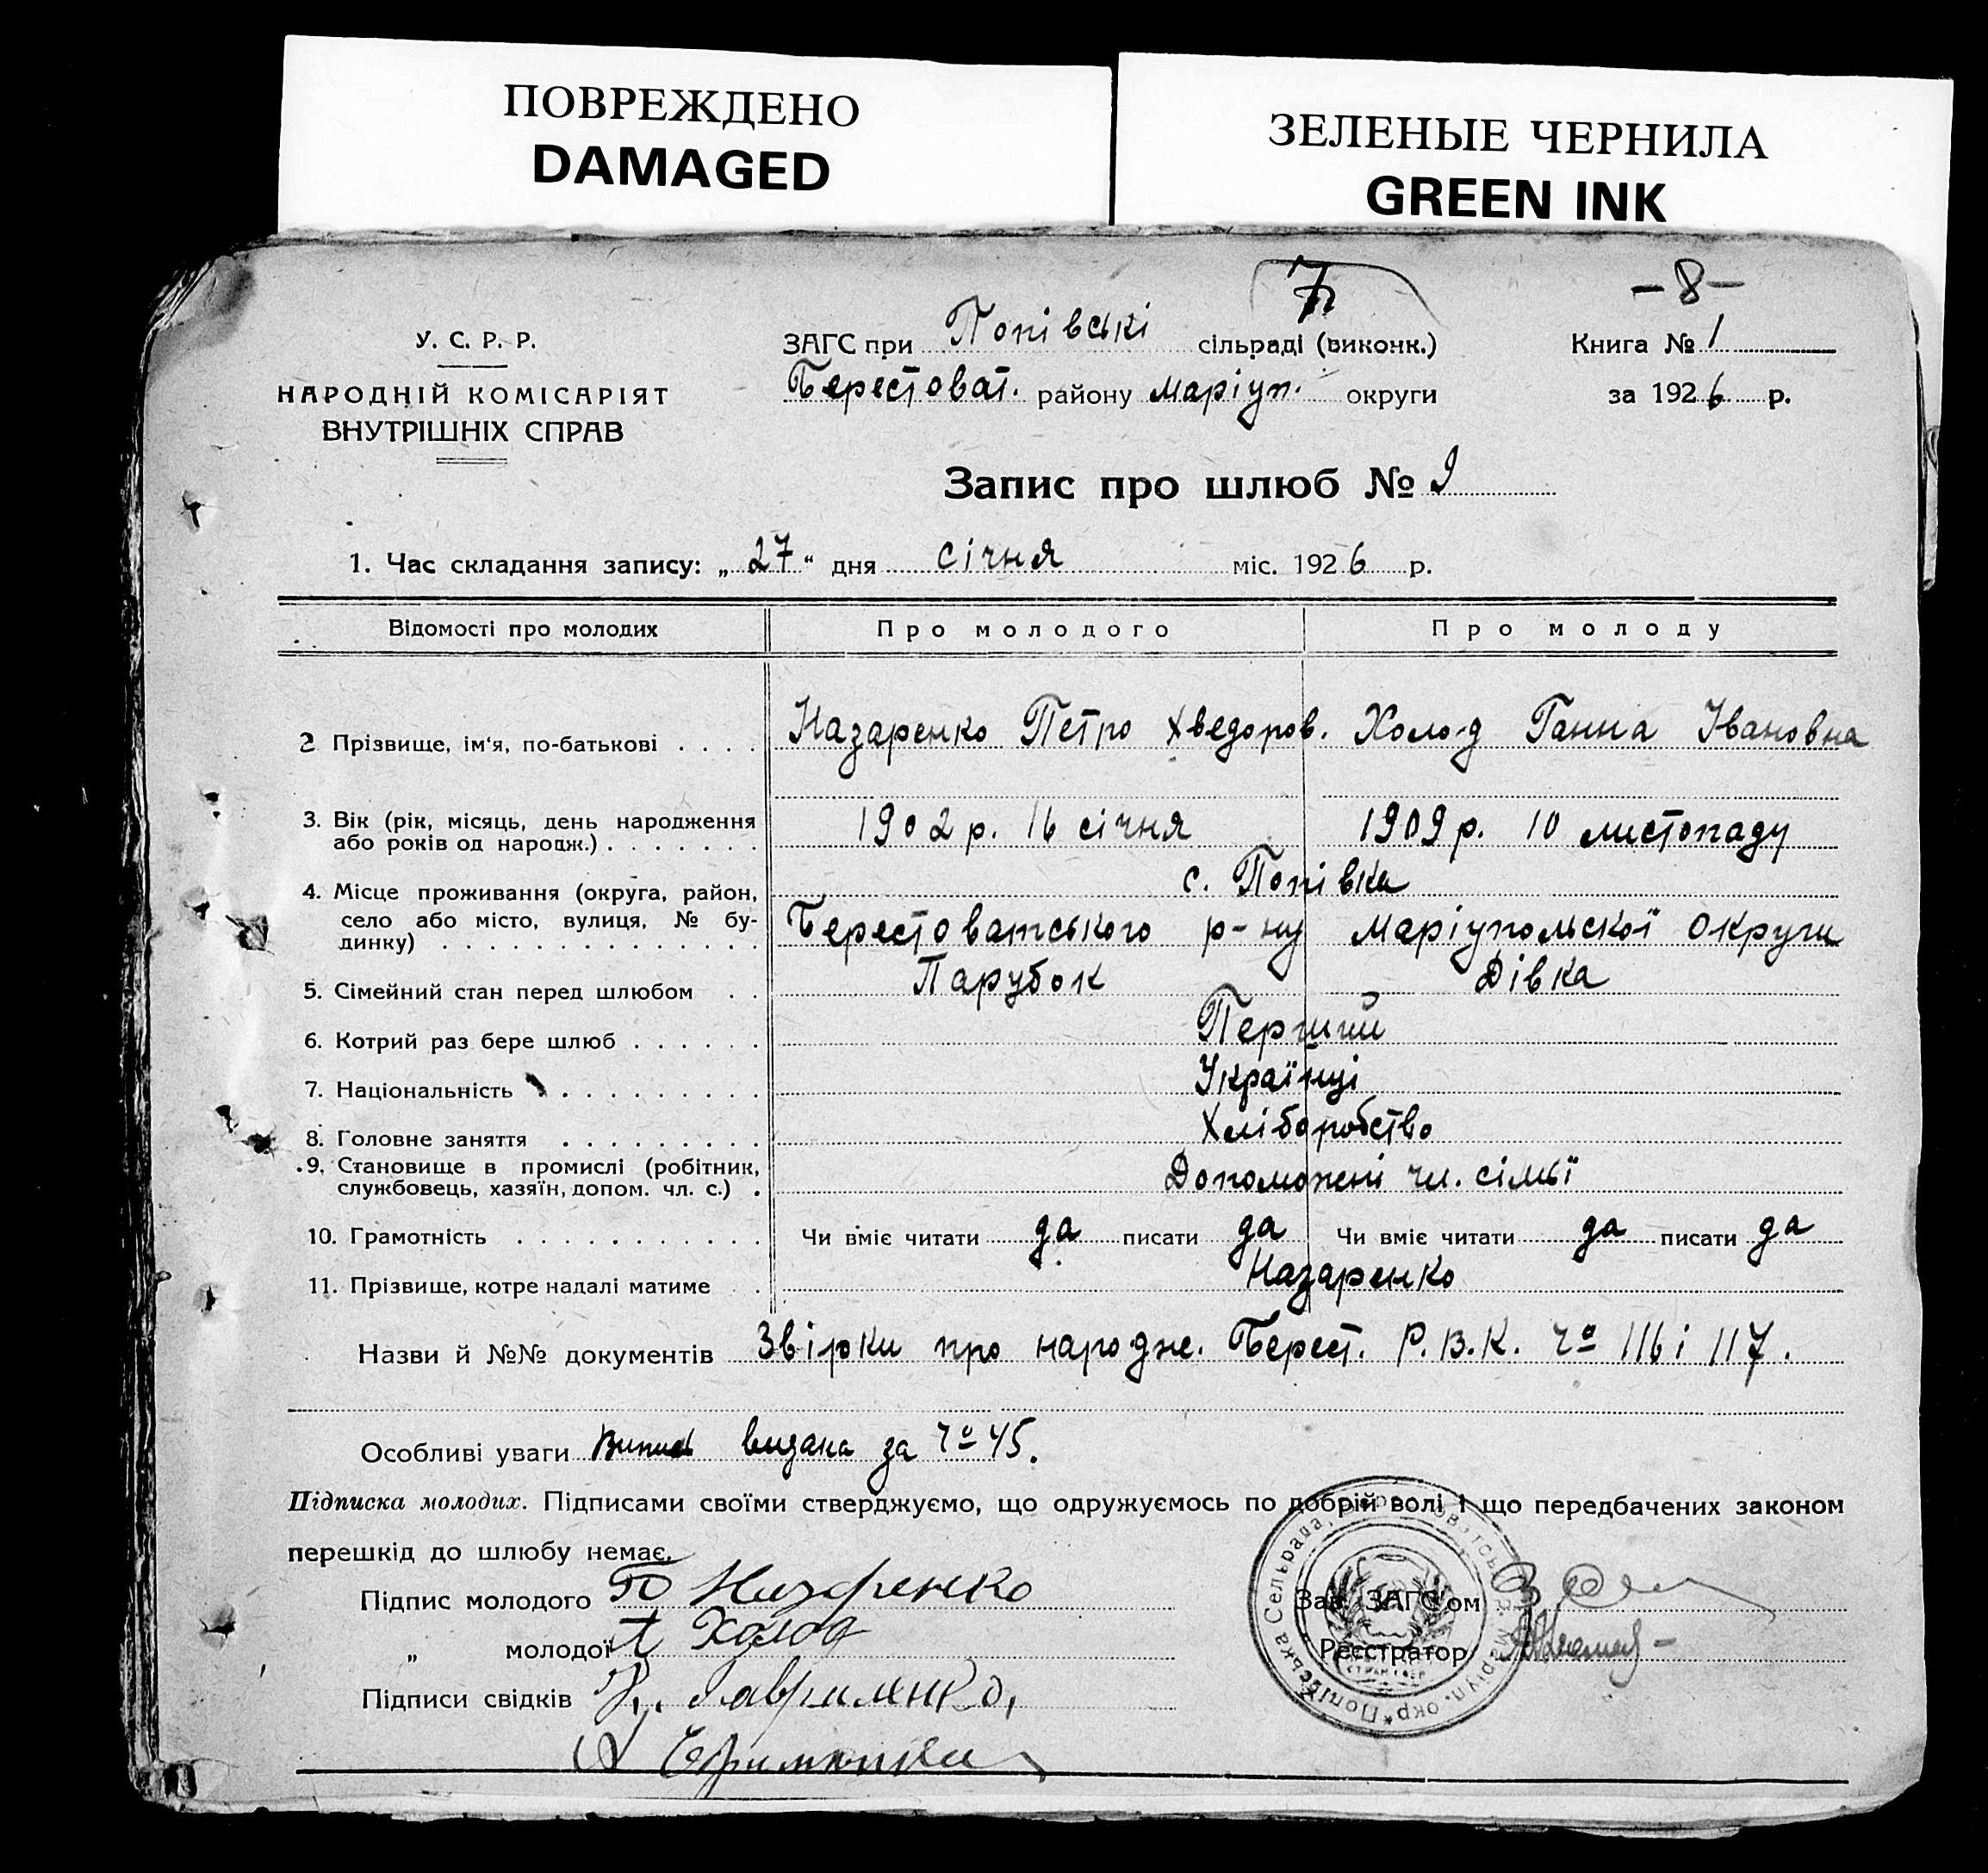 ПОВРЕЖДЕНО
DAMAGED
ЗЕЛЕНЫЕ ЧЕРНИЛА
GREEN INK
7
-8-
У. С. Р. Р.
НАРОДНІЙ КОМІСАРІЯТ
ВНУТРІШНІХ СПРАВ
ЗАГС при Попівські сільраді (виконк.)
Берестоват. району Маріуп. округи
Книга № 1
за 1926 р.
Запис про шлюб № 9
1. Час складання запису: „27“ дня січня міс. 1926 р.
Відомості про молодих Про молодого Про молоду
2 Прізвище, ім'я, по-батькові . . . . Назаренко Петро Хведоров. Холод Ганна Івановна
3. Вік (рік, місяць, день народження
або років од народж.) . . . . . . . 1902 р. 16 січня 1909 р. 10 листопаду
4. Місце проживання (округа, район, с. Попівка
село або місто, вулиця, № бу-
динку) . . . . . . . . . . . . . . Берестоватського р-ну Маріупольскої округи
5. Сімейний стан перед шлюбом . . Парубок Дівка
6. Котрий раз бере шлюб . . . . . . Перший
7. Національність . . . . . . . . . Українці
8. Головне заняття . . . . . . . . . Хліборобство
9. Становище в промислі (робітник,
службовець, хазяїн, допом. чл. с.) . Допоможені чл. сімьї
10. Грамотність . . . . . . . . . . . Чи вміє читати да писати да Чи вміє читати да писати да
11. Прізвище, котре надалі матиме . . Назаренко
Назви й №№ документів Звірки про народже. Берест. Р.В.К. Чо 116 і 117.
Особливі уваги видана за Чо 45.
Підписка молодих. Підписами своїми стверджуємо, що одружуємось по добрій волі і що передбачених законом
перешкід до шлюбу немає.
Підпис молодого П Назаренко
„ молодої Холод
Підписи свідків Гавриленко,
Зав. ЗАГС'ом
Реєстратор
Попівська Сельрада, Маріуп. окр.